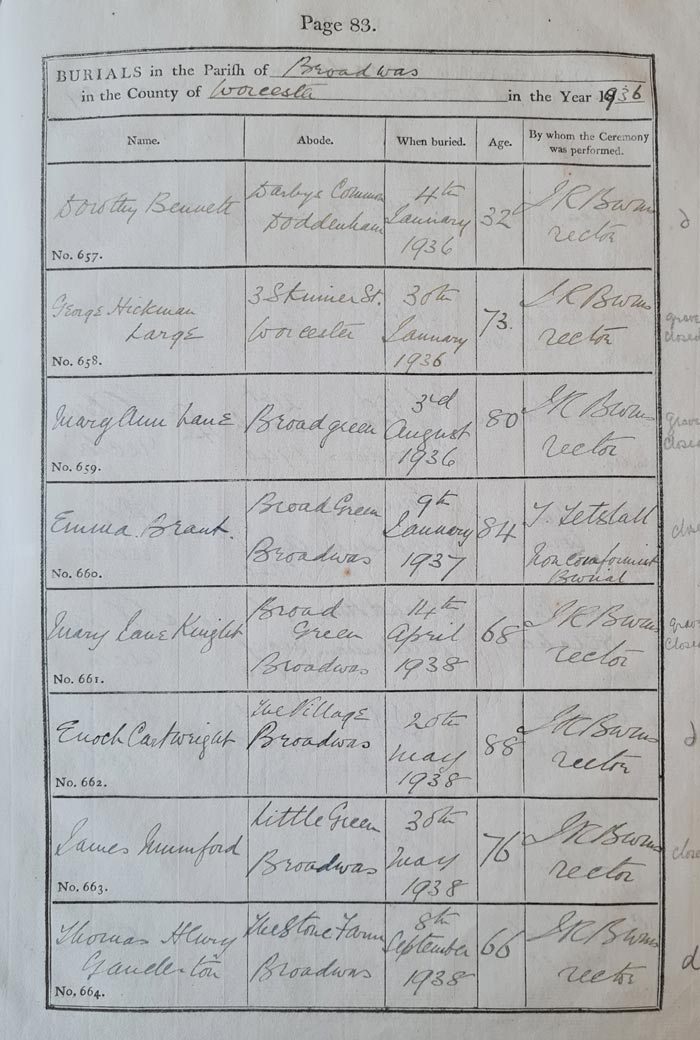 Page 83.
BURIALS in the Parish of Broadwas
in the County of Worcester in the Year 1936
Name. Abode. When buried. Age. By whom the Ceremony was performed.
Dorothy Bennett
No. 657.
Darbys Common
Doddenham
4th
January
1936
32
rector
d
George Hickman
Large
No. 658.
3 Skinner St.
Worcester
30th
January
1936
73.
rector
grave
closed
Mary Ann Lane
No. 659.
Broadgreen
3rd
August
1936
80
rector
grave
closed
Emma Brant.
No. 660.
Broad Green
Broadwas
9th
January
1937
84
Nonconformist
Burial
Mary Jane Knight
No. 661.
Broad
Green
Broadwas
14th
April
1938
68
rector
grave
closed
Enoch Cartwright
No. 662.
The Village
Broadwas
20th
May
1938
88
rector
d
James Mumford
No. 663.
Little Green
Broadwas
30th
May
1938
76
rector
close
Thomas Henry
No. 664.
The Stone Farm
Broadwas
8th
September
1938
66
rector
d